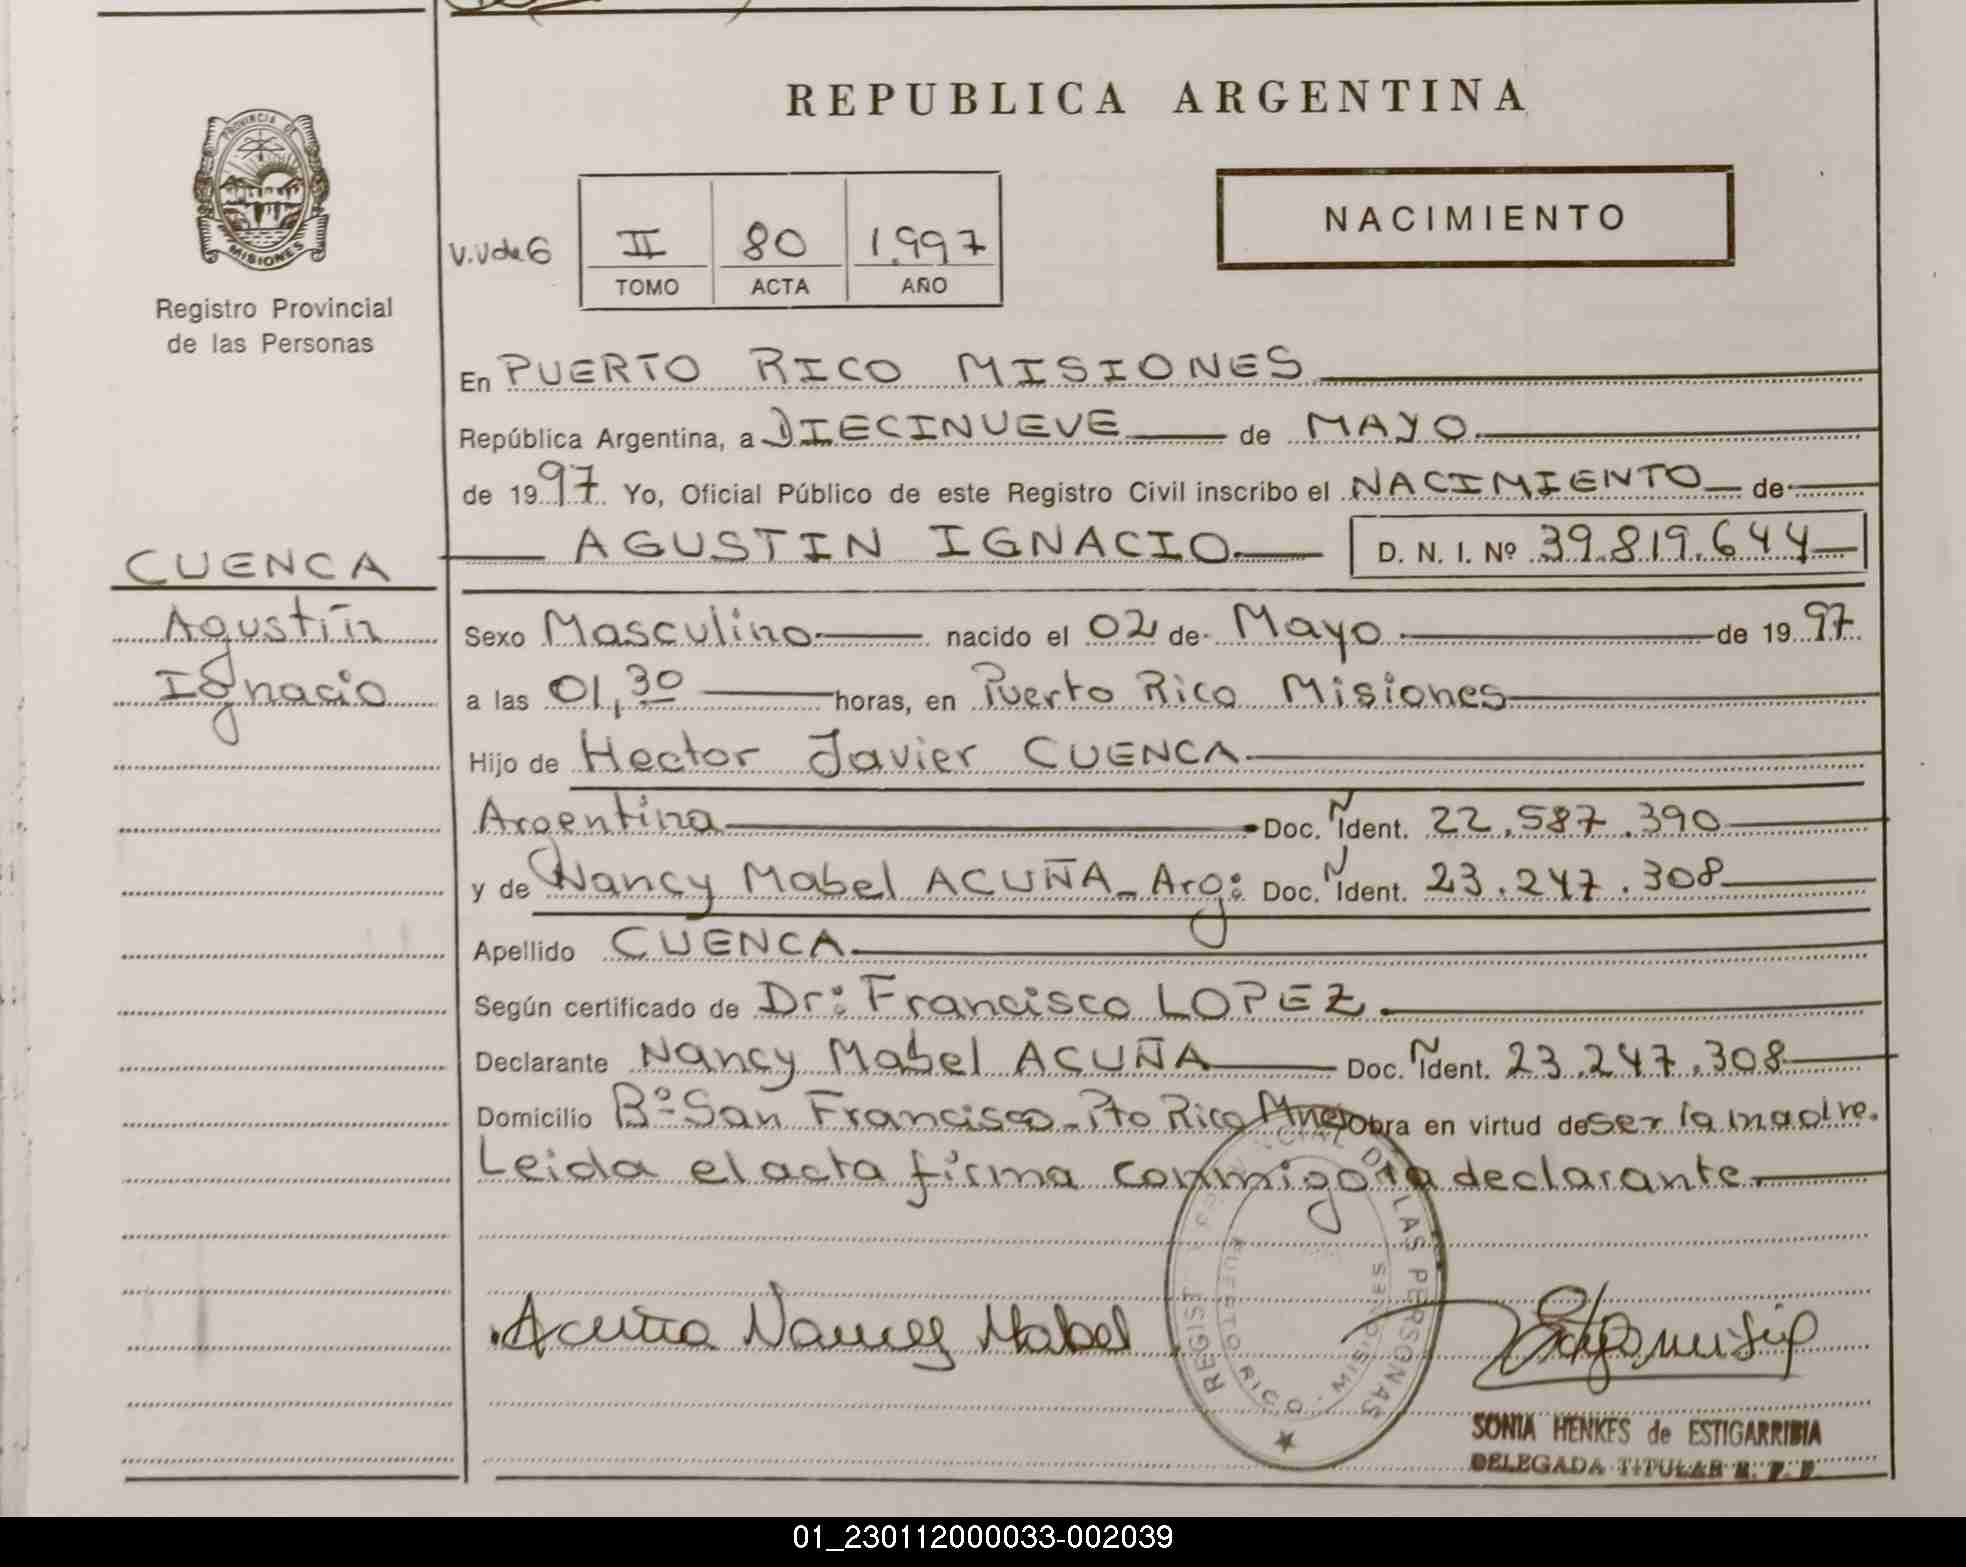 REPUBLICA ARGENTINA
PROVINCIA DE MISIONES
Registro Provincial
de las Personas
V.V de 6
II 80 1.997
TOMO ACTA AÑO
NACIMIENTO
En PUERTO RICO MISIONES
República Argentina, a DIECINUEVE de MAYO
de 1997 Yo, Oficial Público de este Registro Civil inscribo el NACIMIENTO de
AGUSTIN IGNACIO D. N. I. Nº 39.819.644
CUENCA
Agustín
Ignacio
Sexo Masculino nacido el 02 de Mayo de 1997
a las 01,30 horas, en Puerto Rico Misiones
Hijo de Hector Javier CUENCA
Argentina Doc. Ñ Ident. 22.587.390
y de Nancy Mabel ACUÑA - Arg: Doc. Ñ Ident. 23.247.308
Apellido CUENCA
Según certificado de Dr: Francisco LOPEZ.
Declarante Nancy Mabel ACUÑA Doc. Ñ Ident. 23.247.308
Domicilio Bº San Francisco - Pto Rico Mnes Obra en virtud de ser la madre.
Leida el acta firma conmigo la declarante.
Acuña Nancy Mabel
REGISTRO PROVINCIAL DE LAS PERSONAS
PUERTO RICO - MISIONES
SONIA HENKES de ESTIGARRIBIA
DELEGADA TITULAR R. P. P.
01_230112000033-002039